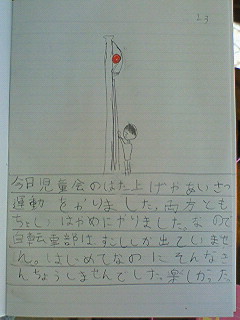 23
今日児童会のはた上げやあいさつ
運動をかりました。両方とも
ちょしいはやめにやりました。なので
自転車部はすこししか出ていませ
ん。はじめてなのにそんなき
んちょうしませんでした。楽しかった。